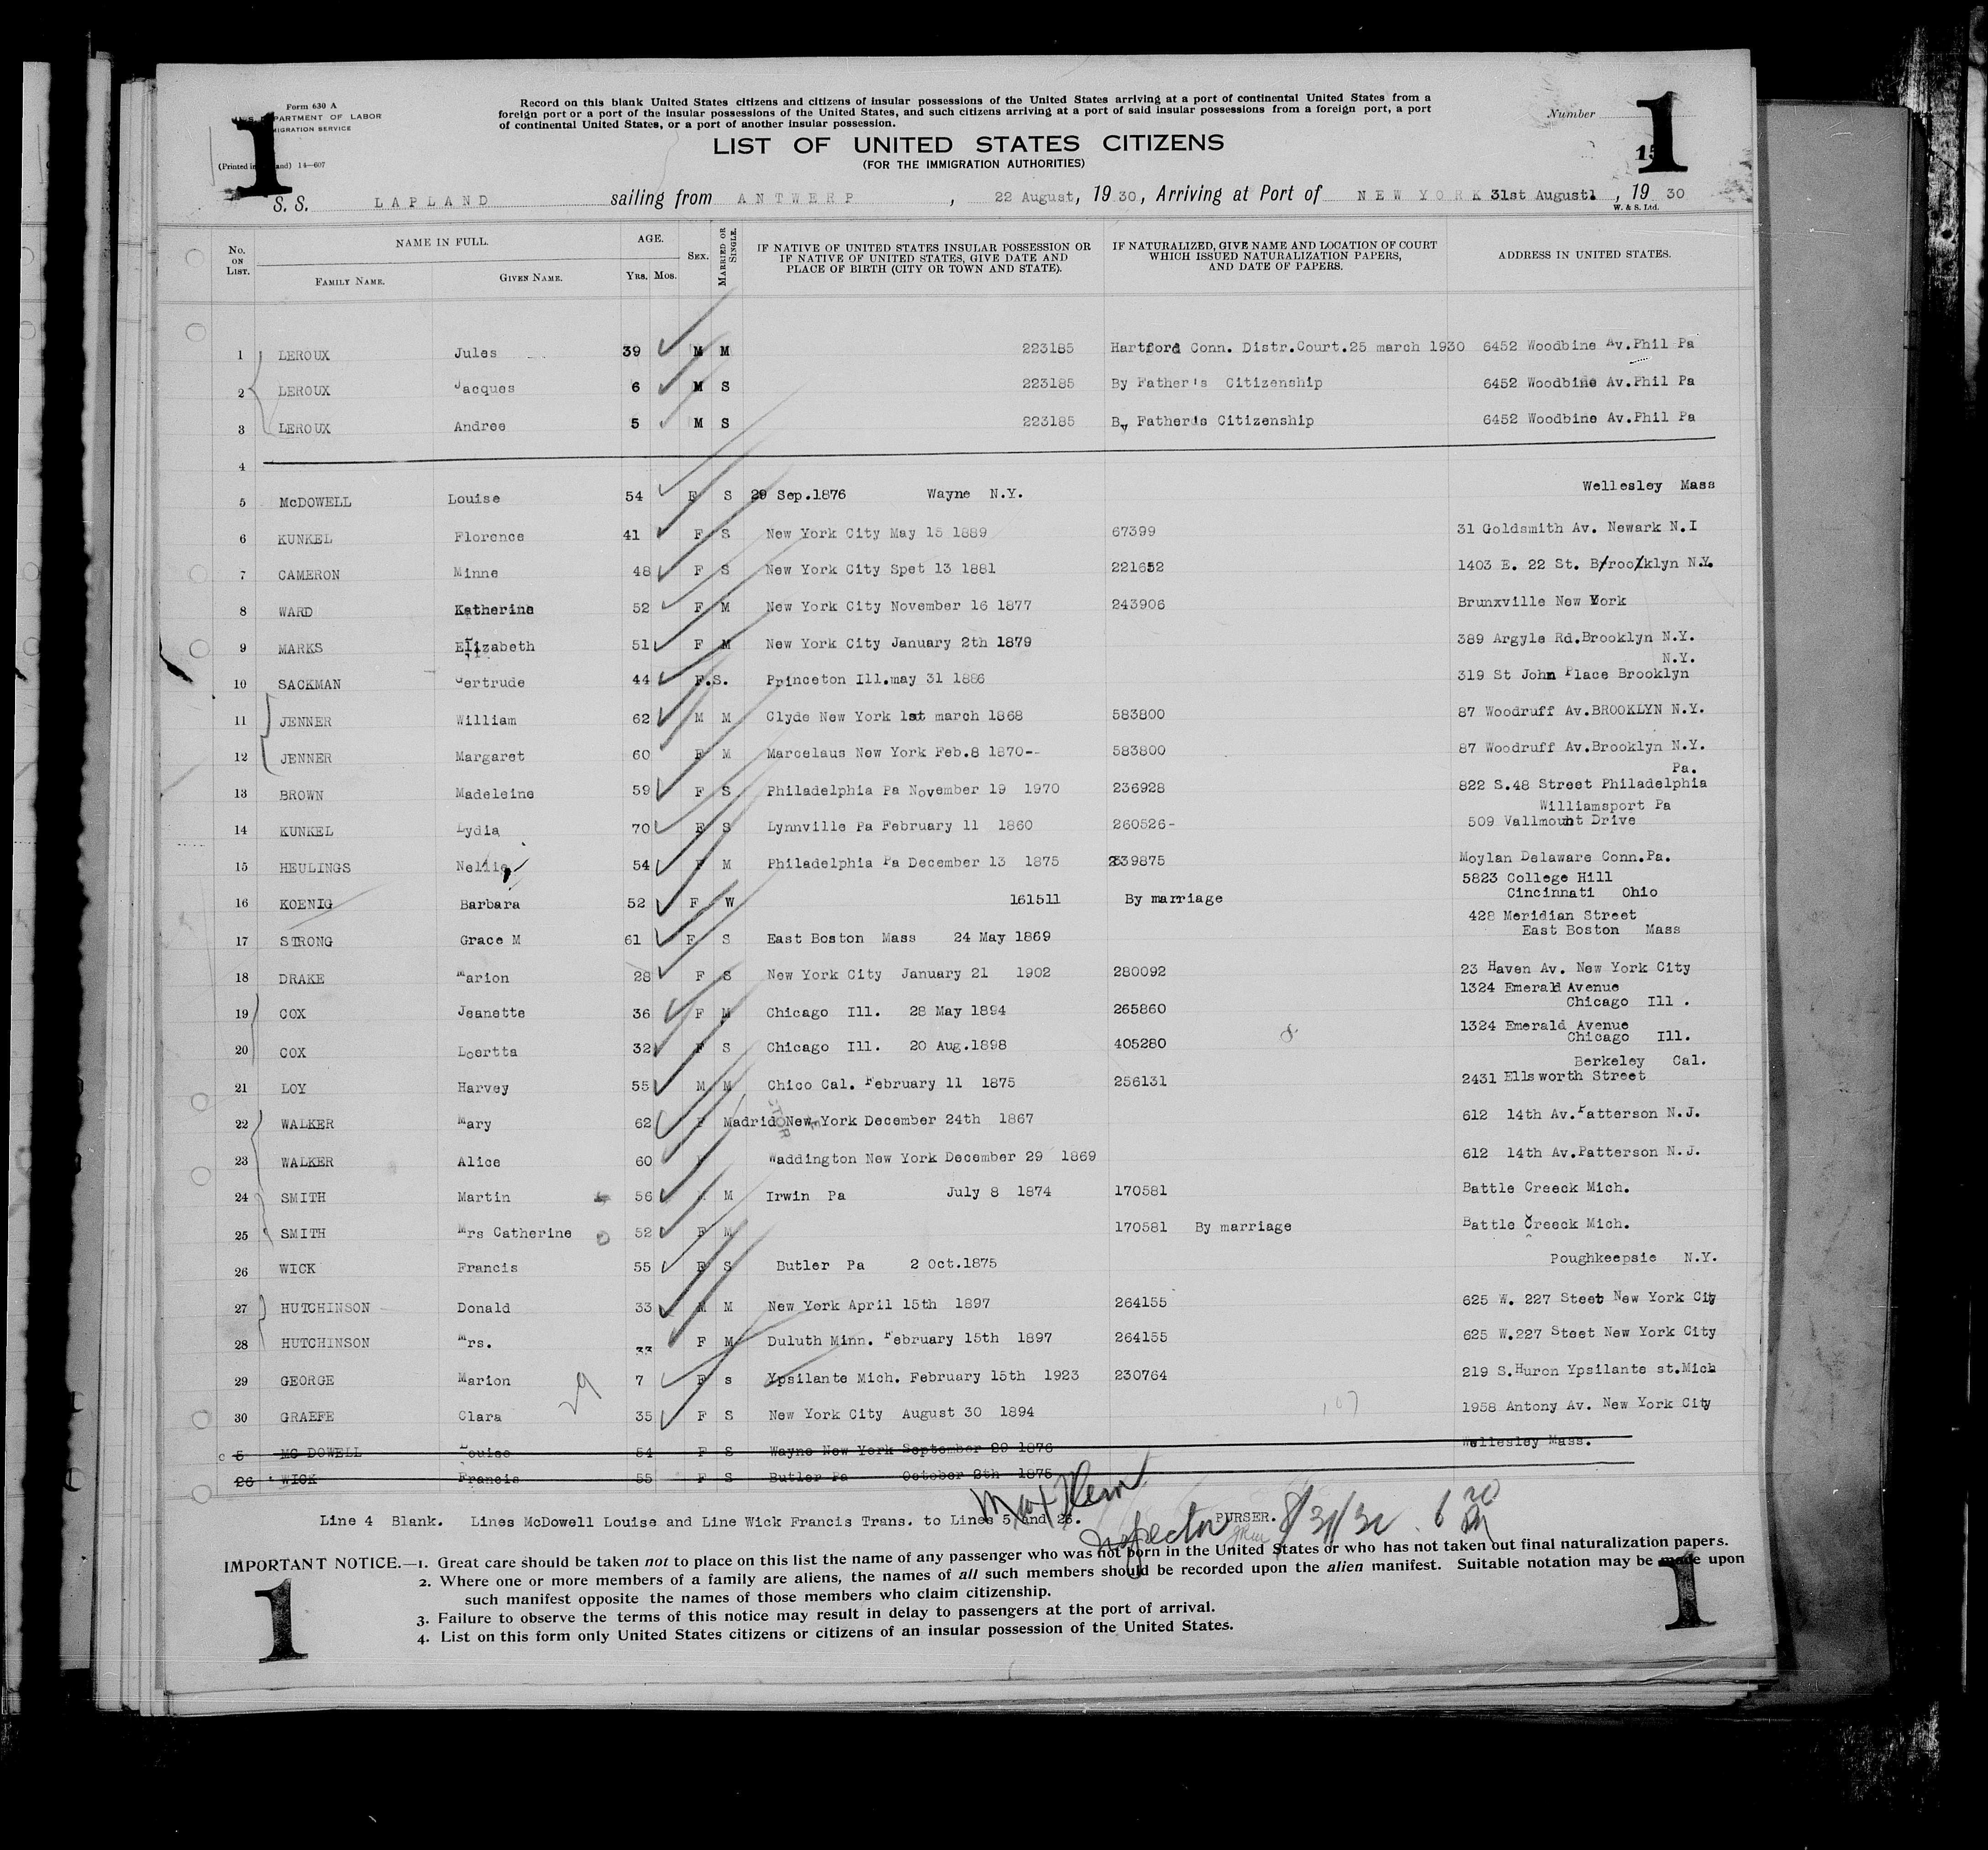 1
1
Form 630 A
DEPARTMENT OF LABOR
IMMIGRATION SERVICE
(Printed in
14—607
Record on this blank United States citizens and citizens of insular possessions of the United States arriving at a port of continental United States from a
foreign port or a port of the insular possessions of the United States, and such citizens arriving at a port of said insular possessions from a foreign port, a port
of continental United States, or a port of another insular possession.
Number
LIST OF UNITED STATES CITIZENS
(FOR THE IMMIGRATION AUTHORITIES)
S. S. LAPLAND sailing from ANTWERP, 22 August, 1930, Arriving at Port of NEW YORK 31st August, 1930
W. & S. Ltd.
No. ON LIST. NAME IN FULL. FAMILY NAME. GIVEN NAME. AGE. YRS. MOS. SEX. MARRIED OR SINGLE. IF NATIVE OF UNITED STATES INSULAR POSSESSION OR IF NATIVE OF UNITED STATES, GIVE DATE AND PLACE OF BIRTH (CITY OR TOWN AND STATE). IF NATURALIZED, GIVE NAME AND LOCATION OF COURT WHICH ISSUED NATURALIZATION PAPERS, AND DATE OF PAPERS. ADDRESS IN UNITED STATES.
1 LEROUX Jules 39 M M 223185 Hartford Conn. Distr.Court.25 march 1930 6452 Woodbine Av.Phil Pa
2 LEROUX Jacques 6 M S 223185 By Father's Citizenship 6452 Woodbine Av.Phil Pa
3 LEROUX Andree 5 M S 223185 By Father's Citizenship 6452 Woodbine Av.Phil Pa
4
5 McDOWELL Louise 54 F S 29 Sep.1876 Wayne N.Y. Wellesley Mass
6 KUNKEL Florence 41 F S New York City May 15 1889 67399 31 Goldsmith Av. Newark N.I
7 CAMERON Minne 48 F S New York City Spet 13 1881 221652 1403 E. 22 St. B/roo/klyn N.Y.
8 WARD Katherine 52 F M New York City November 16 1877 243906 Brunxville New York
9 MARKS Elizabeth 51 F M New York City January 2th 1879 389 Argyle Rd.Brooklyn N.Y.
N.Y.
10 SACKMAN Gertrude 44 F.S. Princeton Ill.may 31 1886 319 St John Place Brooklyn
11 JENNER William 62 M M Clyde New York 1st march 1868 583800 87 Woodruff Av.BROOKLYN N.Y.
12 JENNER Margaret 60 F M Marcelaus New York Feb.8 1870-- 583800 87 Woodruff Av.Brooklyn N.Y.
Pa.
13 BROWN Madeleine 59 F S Philadelphia Pa November 19 1970 236928 822 S.48 Street Philadelphia
Williamsport Pa
14 KUNKEL Lydia 70 F S Lynnville Pa February 11 1860 260526- 509 Vallmount Drive
15 HEULINGS Nellie 54 F M Philadelphia Pa December 13 1875 239875 Moylan Delaware Conn.Pa.
5823 College Hill
16 KOENIG Barbara 52 F W 161511 By marriage Cincinnati Ohio
428 Meridian Street
17 STRONG Grace M 61 F S East Boston Mass 24 May 1869 East Boston Mass
18 DRAKE Marion 28 F S New York City January 21 1902 280092 23 Haven Av. New York City
1324 Emerald Avenue
19 COX Jeanette 36 F M Chicago Ill. 28 May 1894 265860 Chicago Ill .
1324 Emerald Avenue
20 COX Loertta 32 F S Chicago Ill. 20 Aug.1898 405280 Chicago Ill.
Berkeley Cal.
21 LOY Harvey 55 M M Chico Cal. February 11 1875 256131 2431 Ellsworth Street
22 WALKER Mary 62 F Madrid New York December 24th 1867 612 14th Av.Patterson N.J.
23 WALKER Alice 60 Waddington New York December 29 1869 612 14th Av.Patterson N.J.
24 SMITH Martin 56 M Irwin Pa July 8 1874 170581 Battle Creeck Mich.
25 SMITH Mrs Catherine 52 F M 170581 By marriage Battle Creeck Mich.
26 WICK Francis 55 F S Butler Pa 2 Oct.1875 Poughkeepsie N.Y.
27 HUTCHINSON Donald 33 M M New York April 15th 1897 264155 625 W. 227 Steet New York City
28 HUTCHINSON Mrs. 33 F M Duluth Minn. February 15th 1897 264155 625 W.227 Steet New York City
29 GEORGE Marion 7 F s Ypsilante Mich. February 15th 1923 230764 219 S.Huron Ypsilante st.Mich
30 GRAEFE Clara 35 F S New York City August 30 1894 1958 Antony Av. New York City
5 MC DOWELL Louise 54 F S Wayne New York September 29 1876 Wellesley Mass.
26 WICK Francis 55 F S Butler Pa October 2th 1875
Line 4 Blank. Lines McDowell Louise and Line Wick Francis Trans. to Lines 5 and 26.
Inspector
PURSER.
8/31/30
IMPORTANT NOTICE.—1. Great care should be taken not to place on this list the name of any passenger who was not born in the United States or who has not taken out final naturalization papers.
2. Where one or more members of a family are aliens, the names of all such members should be recorded upon the alien manifest. Suitable notation may be made upon
such manifest opposite the names of those members who claim citizenship.
3. Failure to observe the terms of this notice may result in delay to passengers at the port of arrival.
4. List on this form only United States citizens or citizens of an insular possession of the United States.
1
1